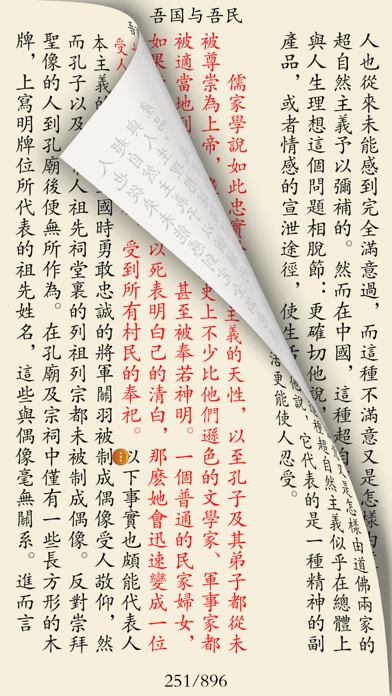 吾国与吾民
人也從來未能感到完全滿意過，而這種不是怎樣由道佛兩家的
超自然主義予以彌補的。然而在中國，這種超自然主義似乎在總體上
與人生理想這個問題相脫節：更確切他說，它代表的是一種精神的副
產品，或者情感的宣泄途徑，使生活更能使人忍受。
儒家學說如此忠實 主義的天性，以至孔子及其弟子都從未
被尊崇為上帝， 史上不少比他們遜色的文學家、軍事家都
被適當地 甚至被奉若神明。一個普通的民家婦女，
如果 以死表明白己的清白，那麼她會迅速變成一位
受人 受到所有村民的奉祀。以下事實也頗能代表人
本主義的 國時勇敢忠誠的將軍關羽被制成偶像受人敬仰，然
而孔子以及 人祖先祠堂裏的列祖列宗都未被制成偶像。反對崇拜
聖像的人到孔廟後便無所作為。在孔廟及宗祠中僅有一些長方形的木
牌，上寫明牌位所代表的祖先姓名，這些與偶像毫無關系。進而言
251/896